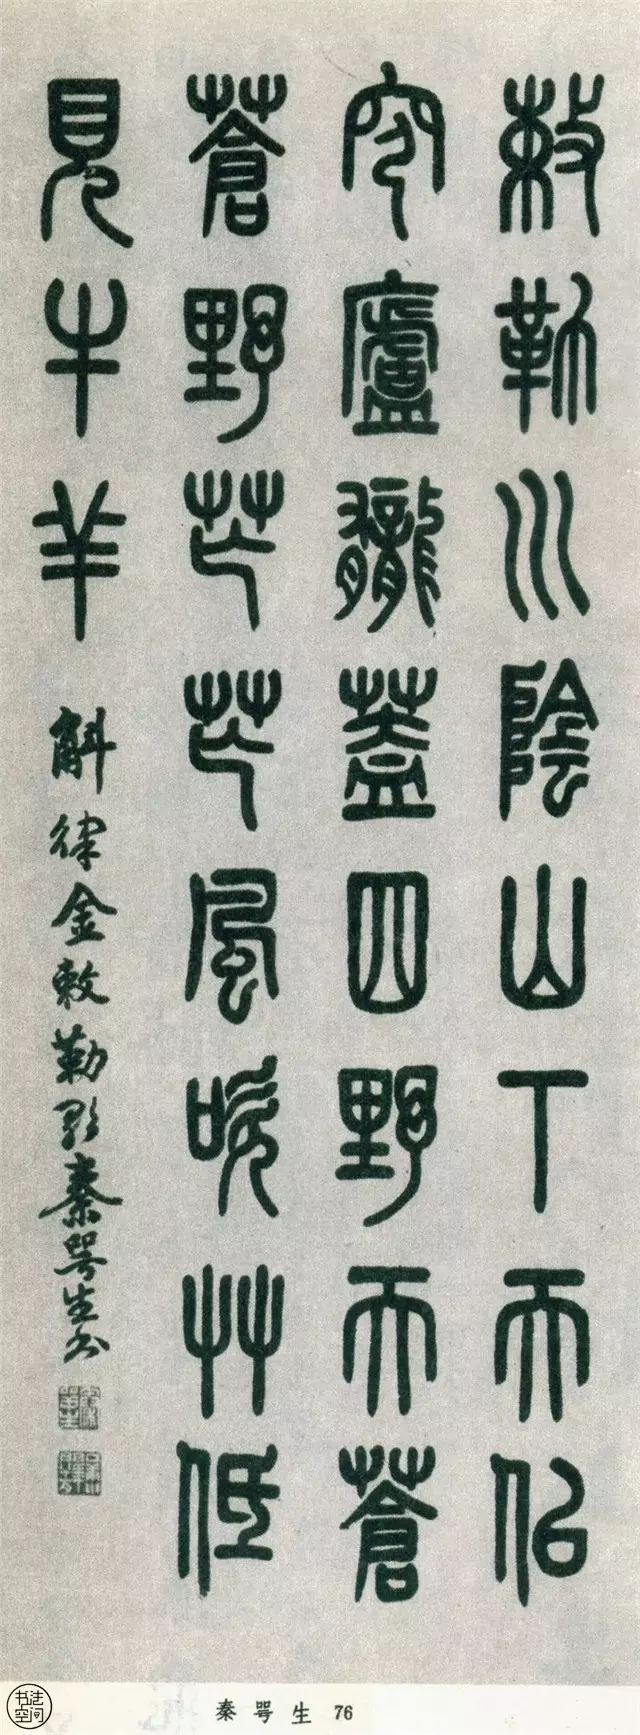 敕勒川陰山下天佀
穹廬龓蓋四野天蒼
蒼野芒芒風吹艸低
見牛羊 斛律金敕勒歌秦咢生书
秦咢生 76
书法空间